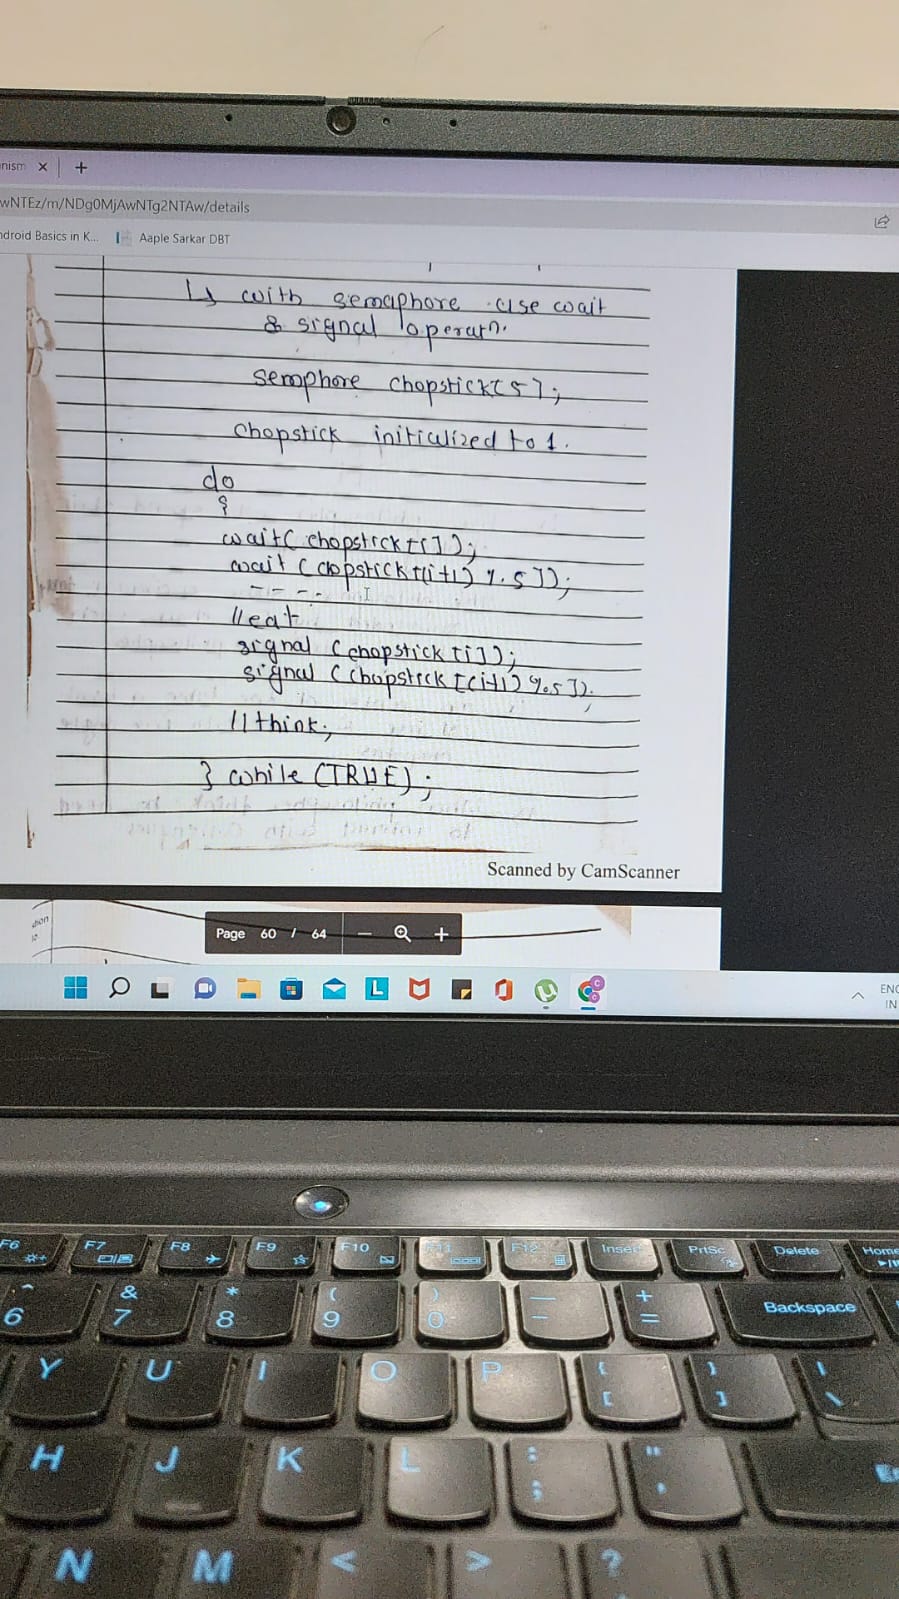 nism × +
wNTEz/m/NDg0MjAwNTg2NTAw/details
ndroid Basics in K... Aaple Sarkar DBT
↳ with semaphore use wait
& signal operatn.
semphore chopstick[5];
chopstick initialized to 1.
do
{
wait( chopstick[i]);
wait (chopstick[(i+1) %.5]);
- - - -
//eat
signal (chopstick [i]);
signal (chopstick [(i+1) %.5]);
//think;
} while (TRUE);
Scanned by CamScanner
Page 60 / 64 — +
ENG
IN
F6 F7 F8 F9 F10 F11 F12 Insert PrtSc Delete Home
^ & * ( ) — +
6 7 8 9 0 - = Backspace
Y U I O P { [ } ] | \
H J K L : ; " '
N M < > ?